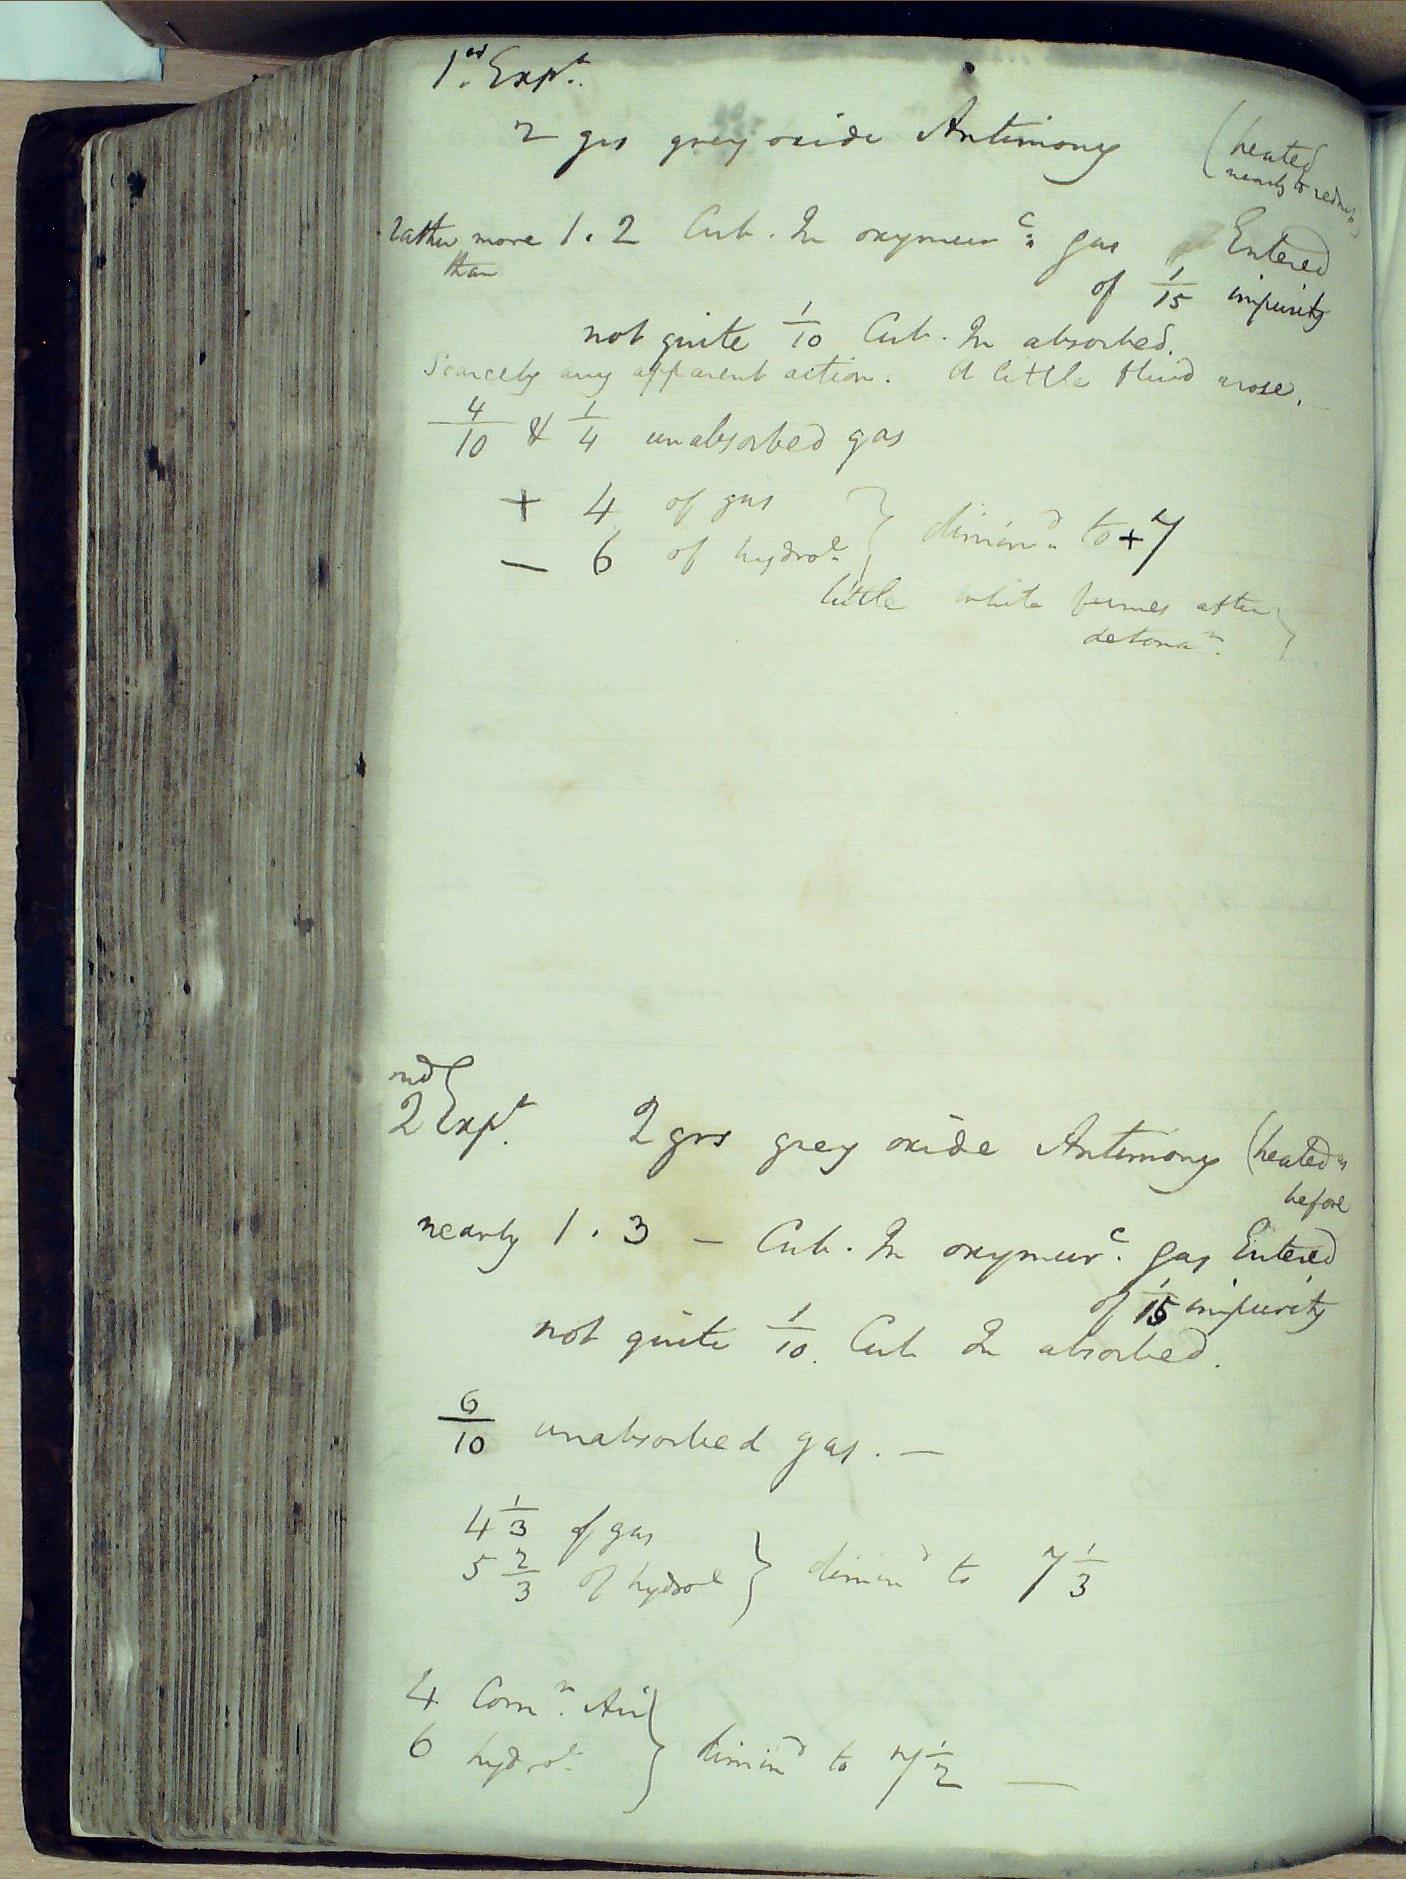 1st. Expt.
2 grs grey oxide Antimony (heated
nearly to redness)
rather more 1.2 Cub. In oxymurc. gas Entered
than of 1/15 impurity
not quite 1/10 Cub. In absorbed.
Scarcely any apparent action. A little fluid arose.
4/10 & 1/4 unabsorbed gas
+ 4 of gas } dimind. to + 7
- 6 of hydrol.
little white fumes after }
detonan.
2nd Expt. 2 grs grey oxide Antimony (heated as
before
nearly 1.3 - Cub. In oxymurc. gas Entered
of 1/15 impurity
not quite 1/10. Cub In absorbed.
6/10 unabsorbed gas. —
4 1/3 of gas } dimind to 7 1/3
5 2/3 of hydrol
4 Comn. Air } dimind to 7 1/2 —
6 hydrol.